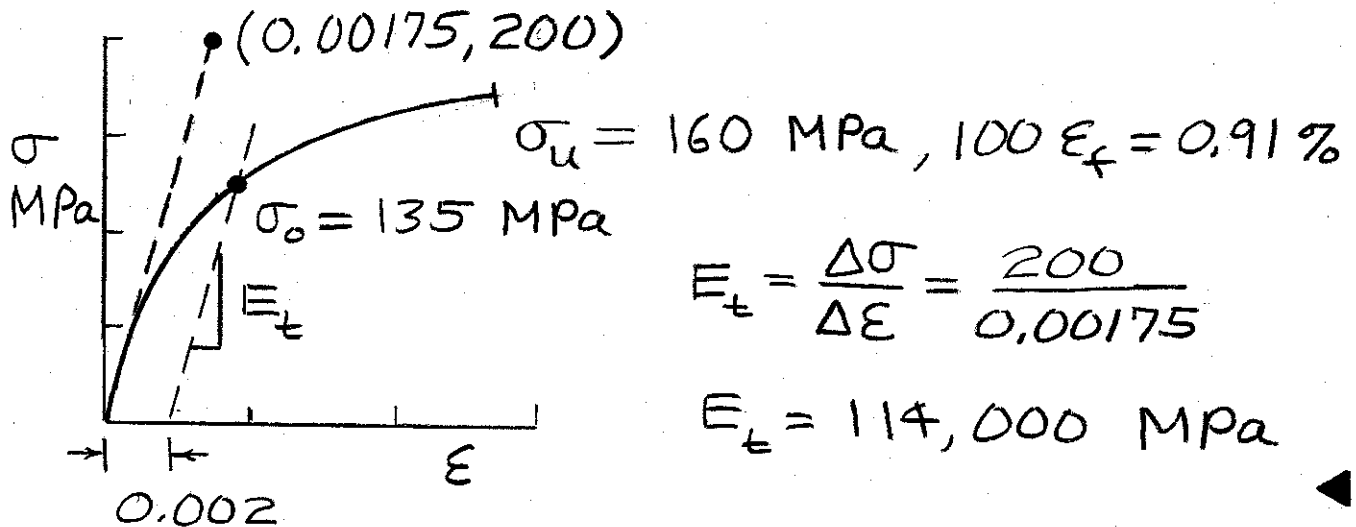 (0.00175, 200)
σ
MPa
σu = 160 MPa, 100 εf = 0.91 %
σo = 135 MPa
Et
Et = Δσ/Δε = 200/0.00175
Et = 114,000 MPa
ε
0.002